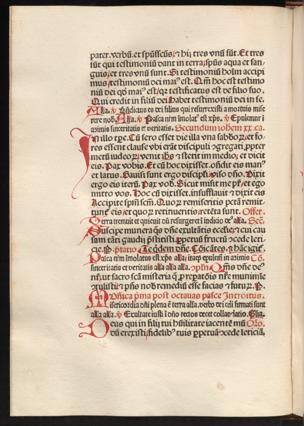 pater. verbū. et spūsscūs. ⁊ hij tres vnū sūt. Et tres
sūt qui testimoniū dant in terra. spūs aqua et san-
guis. et tres vnū sunt. Si testimoniū hoīm accipi
mus. testimoniū dei mai⁹ est. Qm̄ hoc est testimo
niū dei qđ mai⁹ est. qz testificatus est de filio suo.
Qui credit in filiū dei. habet testimoniū dei in se.
Alla. qui resurrexit a mortuis mise
rere nob̄. Alla. ℣ Pasca nrm̄ īmolat⁹ est xp̄s. ℣ Epulemur ī
azimis sinceritatis ⁊ veritatis. Secundum iohem xx ca.
In illo tꝑe. Cū sero esset die illa vna sabboꝝ. et fo
res essent clause vbi erāt discipuli ɔgregati. ꝓpter
metū iudeoꝝ. venit ihs ⁊ stetit in medio. et dixit
eis. Pax vobis. Et cū hoc dixisset. ondit eis man⁹
et latus. Gauisi sunt ergo discipuli viso dn̄o. Dixit
ergo eis iteꝝ. Pax vob̄. Sicut misit me pr̄. et ego
mitto vos. Hoc cū dixisset. insufflauit ⁊ dixit eis
Accipite spm̄ scm̄. Quoꝝ remiseritis pctā remit-
tunt̄ eis. et quoꝝ retinueritis. retēta sunt. Offert.
Terra tremuit et quieuit dū resurgeret ī iudicio de⁹ alla. Scr̄.
Suscipe munera qs dn̄e exultātis ecclie. ⁊ cui cau
sam tāti gaudij p̄stitisti. ꝑpetuū fructū ɔcede leti-
cie. P.
Pasca nrm̄ īmolatus est. xp̄s alla. itaqꝫ epulem̄ in azimis Cō.
sinceritatis et veritatis alla alla alla. Qs dn̄e de⁹
nr̄. ut sacro scā misteria
Dn̄ica pma post octauas pasce Introitus.
Misericordia dn̄i plena ē terra alla. verbo dei celi firmati sunt
alla alla. ℣ Exultate iusti ī dn̄o rectos decet collaudatio.
Deus qui in filij tui hūilitate iacentē mū
dū erexisti. fidelib⁹ tuis ꝑpetuā ɔcede leticiā.